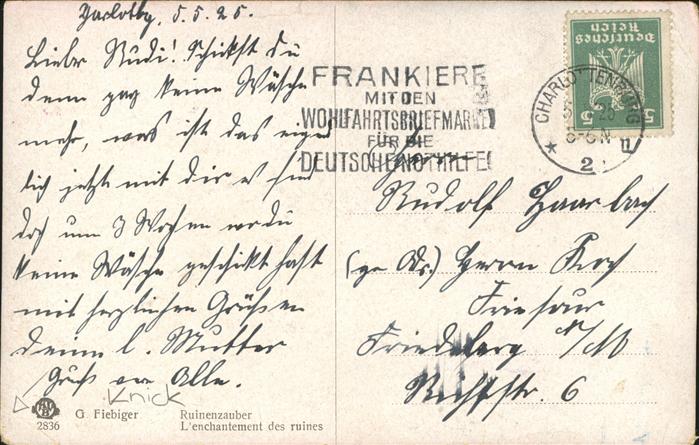 Charlottbg, 5.5.25.
Lieber Rudi! Schickst du
denn gar keine Wäsche
mehr, was ist das eigent
lich jetzt mit dir es sind
doch um 3 Wochen wo du
keine Wäsche geschikt hast
mit herzlichen Grüßen
deine l. Mutter
Gruß von Alle.
Knick
G. Fiebiger
2836
Ruinenzauber
L'enchantement des ruines
FRANKIERE
MIT DEN
WOHLFAHRTSBRIEFMARKEN
FÜR DIE
DEUTSCHE NOTHILFE!
Deutsches
Reich
5 5
CHARLOTTENBURG
25
8-9 N
* 2
Herrn
Rudolf Haarbach
Herrn Koch
Friseur
Friedeberg N/M
Richtstr. 6